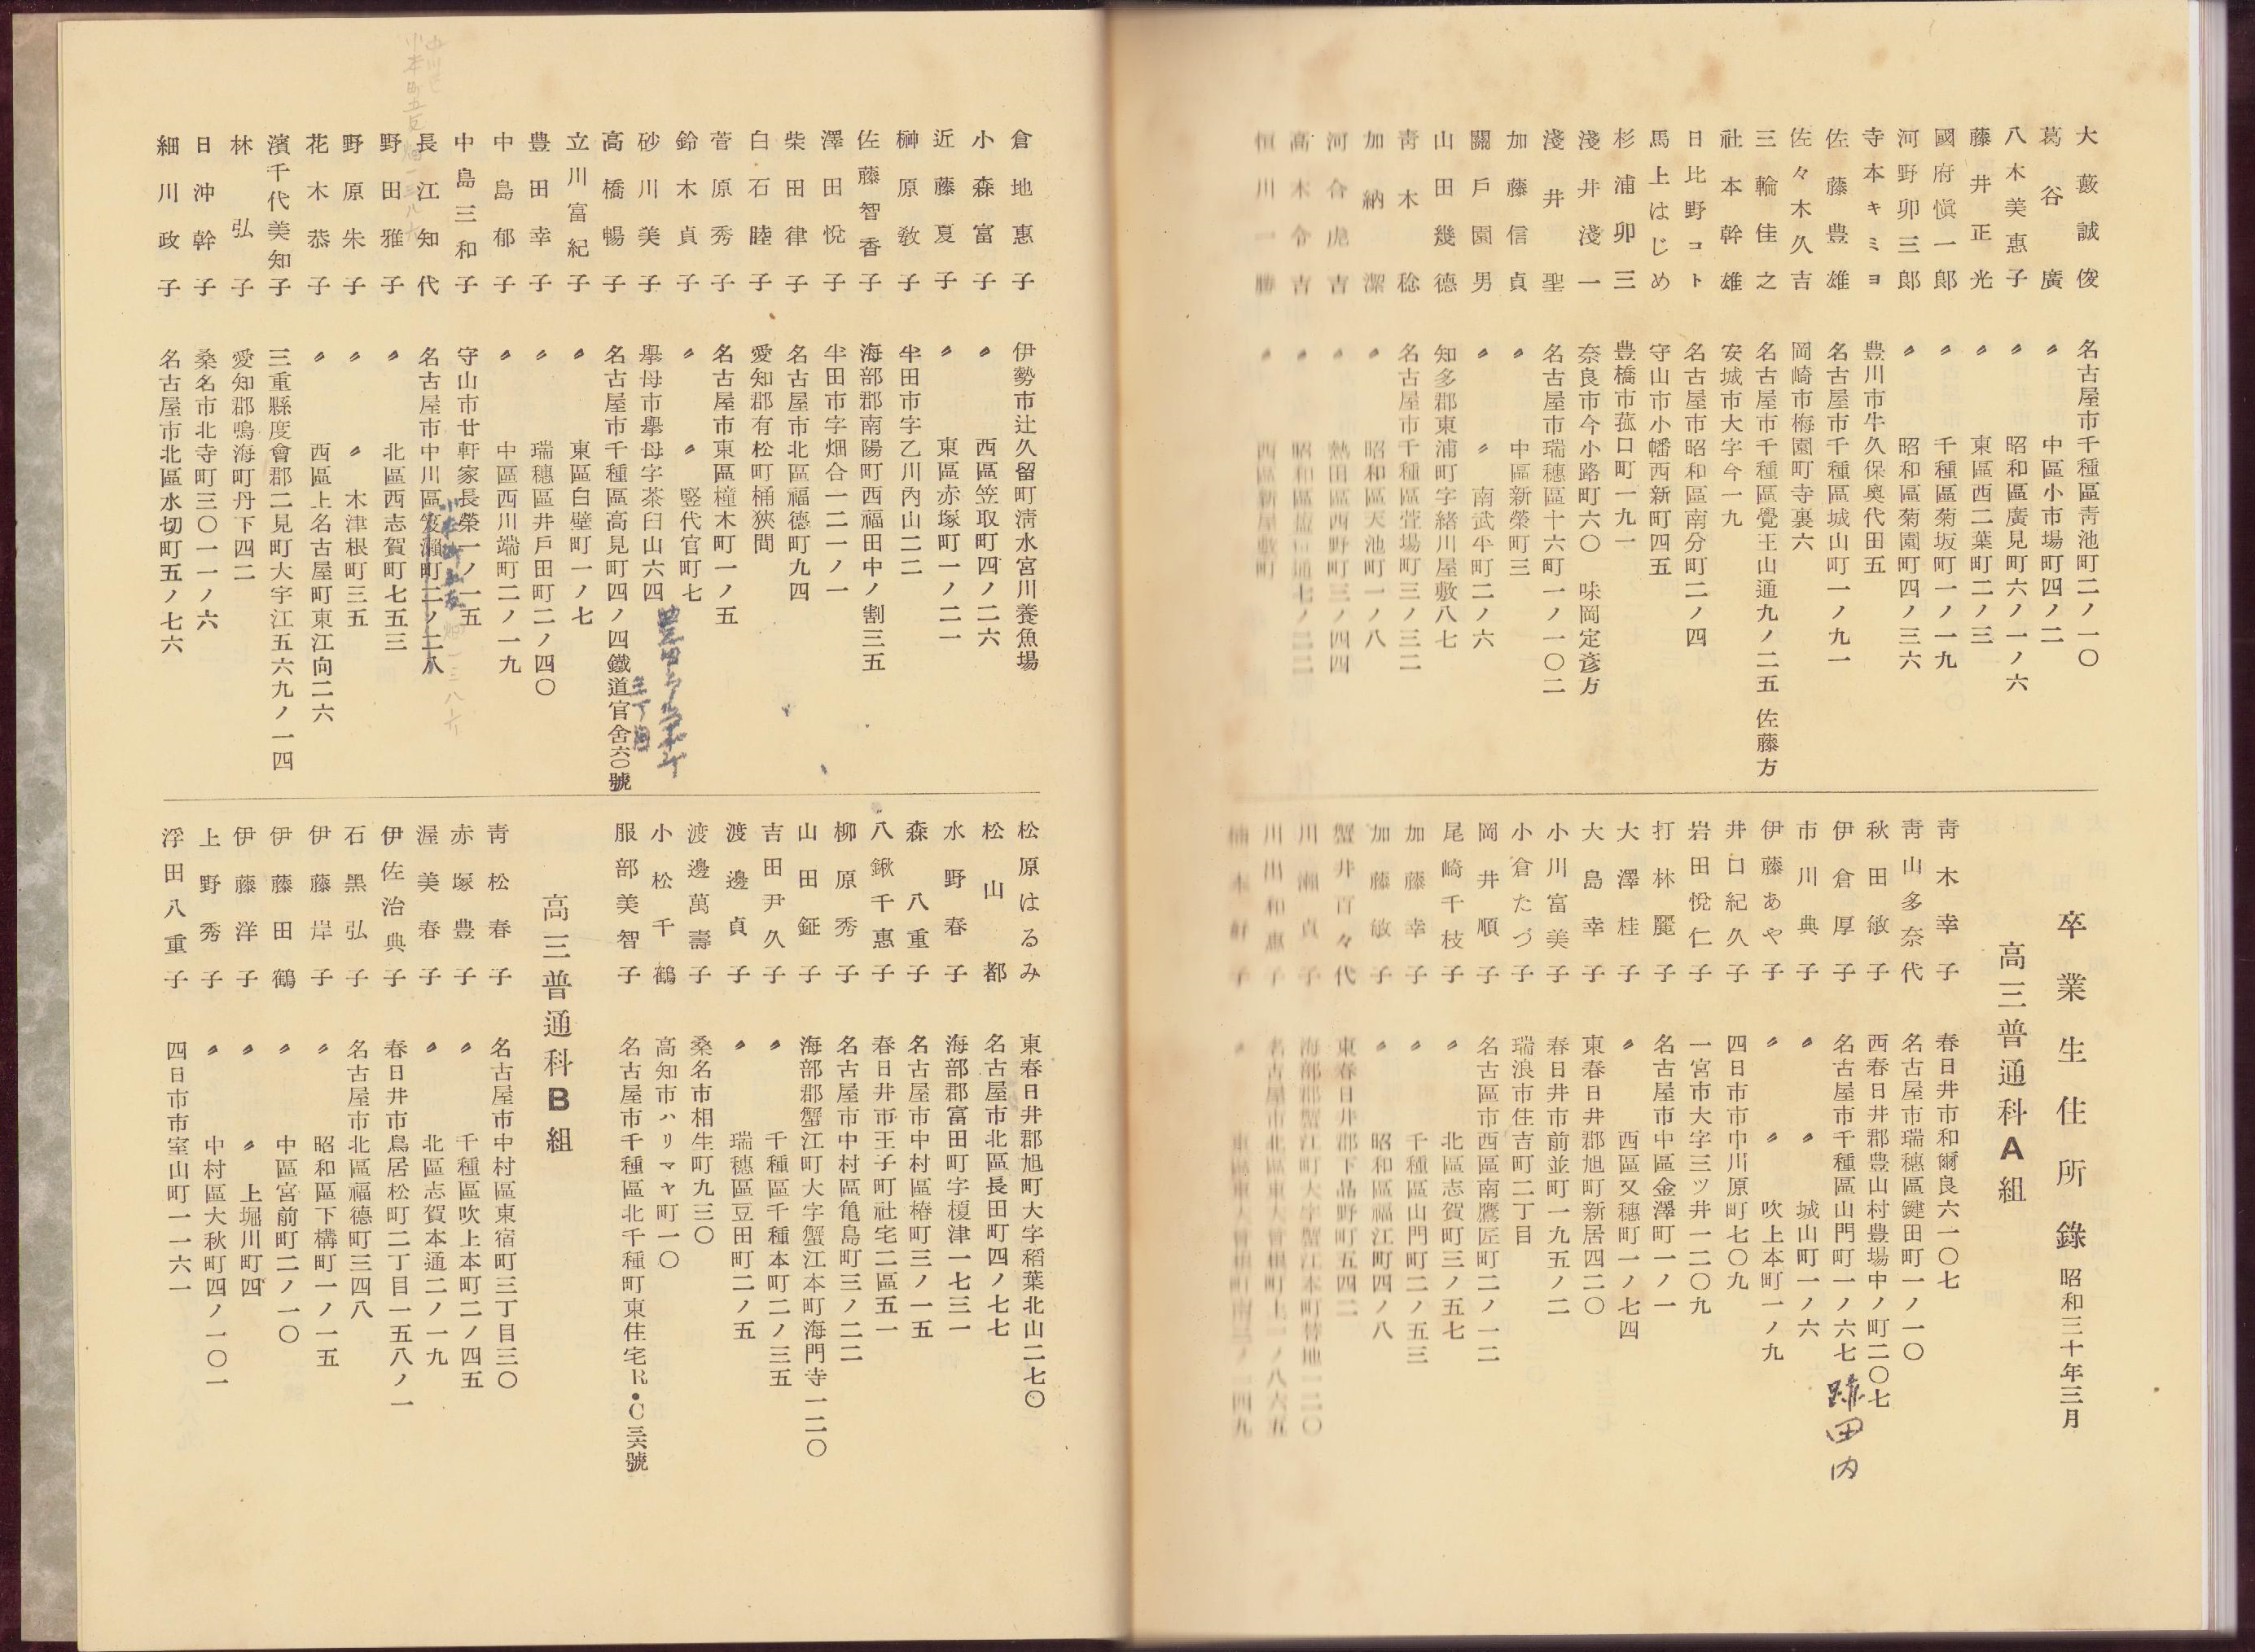 大藪誠俊 名古屋市千種區靑池町二ノ一〇
葛谷廣 〃 中區小市場町四ノ二
八木美惠子 〃 昭和區廣見町六ノ一ノ六
藤井正光 〃 東區西二葉町二ノ三
國府愼一郞 〃 千種區菊坂町一ノ一九
河野卯三郞 〃 昭和區菊園町四ノ三六
寺本キミヨ 豊川市牛久保奥代田五
佐藤豊雄 名古屋市千種區城山町一ノ九一
佐々木久吉 岡崎市梅園町寺裏六
三輪佳之 名古屋市千種區覺王山通九ノ二五 佐藤方
社本幹雄 安城市大字今一九
日比野コト 名古屋市昭和區南分町二ノ四
馬上はじめ 守山市小幡西新町四五
杉浦卯三 豊橋市菰口町一九一
淺井淺一 奈良市今小路町六〇 味岡定彦方
淺井聖 名古屋市瑞穂區十六町一ノ一〇二
加藤信貞 〃 中區新榮町三
關戶園男 〃 〃 南武平町二ノ六
山田幾德 知多郡東浦町字緒川屋敷八七
靑木稔 名古屋市千種區萱場町三ノ三二
加納潔 〃 昭和區天池町一ノ八
河合虎吉 〃 熱田區西野町三ノ四四
髙木令吉 〃 昭和區
恒川一勝 〃 西區新屋敷町
卒業生住所錄 昭和三十年三月
高三普通科A組
靑木幸子 春日井市和爾良六一〇七
靑山多奈代 名古屋市瑞穂區鍵田町一ノ一〇
秋田敏子 西春日井郡豊山村豊場中ノ町二〇七
伊倉厚子 名古屋市千種區山門町一ノ六七 跡田内
市川典子 〃 〃 城山町一ノ六
伊藤あや子 〃 〃 吹上本町一ノ九
井口紀久子 四日市市中川原町七〇九
岩田悅仁子 一宮市大字三ツ井一二〇九
打林麗子 名古屋市中區金澤町一ノ一
大澤桂子 〃 西區又穂町一ノ七四
大島幸子 東春日井郡旭町新居四二〇
小川富美子 春日井市前並町一九五ノ二
小倉たづ子 瑞浪市住吉町二丁目
岡井順子 名古區市西區南鷹匠町二ノ一二
尾崎千枝子 〃 北區志賀町三ノ五七
加藤幸子 〃 千種區山門町二ノ五三
加藤敏子 〃 昭和區福江町四ノ八
蟹井百々代 東春日井郡下品野町五四二
川瀨貞子 海部郡蟹江町大字蟹江本町替地一二〇
川出和惠子 名古屋市北區東大曾根町上一ノ八六五
楠本軒子 〃 東區東大曾根町南三ノ一四九
倉地惠子 伊勢市辻久留町淸水宮川養魚場
小森富子 〃 西區笠取町四ノ二六
近藤夏子 〃 東區赤塚町一ノ二一
榊原敎子 半田市字乙川內山二二
佐藤智香子 海部郡南陽町西福田中ノ割三五
澤田悅子 半田市字畑合一二一ノ一
柴田律子 名古屋市北區福德町九四
白石睦子 愛知郡有松町桶狹間
菅原秀子 名古屋市東區橦木町一ノ五
鈴木貞子 〃 〃 竪代官町七
砂川美子 擧母市擧母字茶臼山六四
三丁目
高橋暢子 名古屋市千種區高見町四ノ四鐵道官舍六〇號
立川富紀子 〃 東區白壁町一ノ七
豊田幸子 〃 瑞穂區井戶田町二ノ四〇
中島郁子 〃 中區西川端町二ノ一九
中島三和子 守山市廿軒家長榮一ノ一五
小本町五反畑一三八ノ六
長江知代 名古屋市中川區篠瀨町二ノ二八
中川区
小本町五反畑一三八ノ六
野田雅子 〃 北區西志賀町七五三
野原朱子 〃 〃 木津根町三五
花木恭子 〃 西區上名古屋町東江向二六
濱千代美知子 三重縣度會郡二見町大字江五六九ノ一四
林弘子 愛知郡鳴海町丹下四二
日沖幹子 桑名市北寺町三〇一一ノ六
細川政子 名古屋市北區水切町五ノ七六
松原はるみ 東春日井郡旭町大字稻葉北山二七〇
松山都 名古屋市北區長田町四ノ七七
水野春子 海部郡富田町字榎津一七三一
森八重子 名古屋市中村區椿町三ノ一五
八鍬千惠子 春日井市王子町社宅二區五一
柳原秀子 名古屋市中村區亀島町三ノ二二
山田鉦子 海部郡蟹江町大字蟹江本町海門寺一二〇
吉田尹久子 〃 千種區千種本町二ノ三五
渡邊貞子 〃 瑞穂區豆田町二ノ五
渡邊萬壽子 桑名市相生町九三〇
小松千鶴 高知市ハリマヤ町一〇
服部美智子 名古屋市千種區北千種町東住宅R・C三六號
高三普通科B組
靑松春子 名古屋市中村區東宿町三丁目三〇
赤塚豊子 〃 千種區吹上本町二ノ四五
渥美春子 〃 北區志賀本通二ノ一九
伊佐治典子 春日井市鳥居松町二丁目一五八ノ一
石黑弘子 名古屋市北區福德町三四八
伊藤岸子 〃 昭和區下構町一ノ一五
伊藤田鶴 〃 中區宮前町二ノ一〇
伊藤洋子 〃 〃 上堀川町四
上野秀子 〃 中村區大秋町四ノ一〇一
浮田八重子 四日市市室山町一一六一